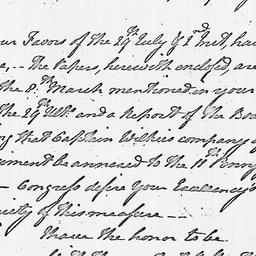 our Favors of the 29th July & 2nd Inst, hav
a, -- The Papers, herewith enclosed, are
the 8th March mentioned in your
The 29th Ulto and a Report of the Boa
g that Captain Wilkies company o
ement be annexed to the 11th Penny
- Congress desire your Excellency's
riety of this measure --
I have the honor to be